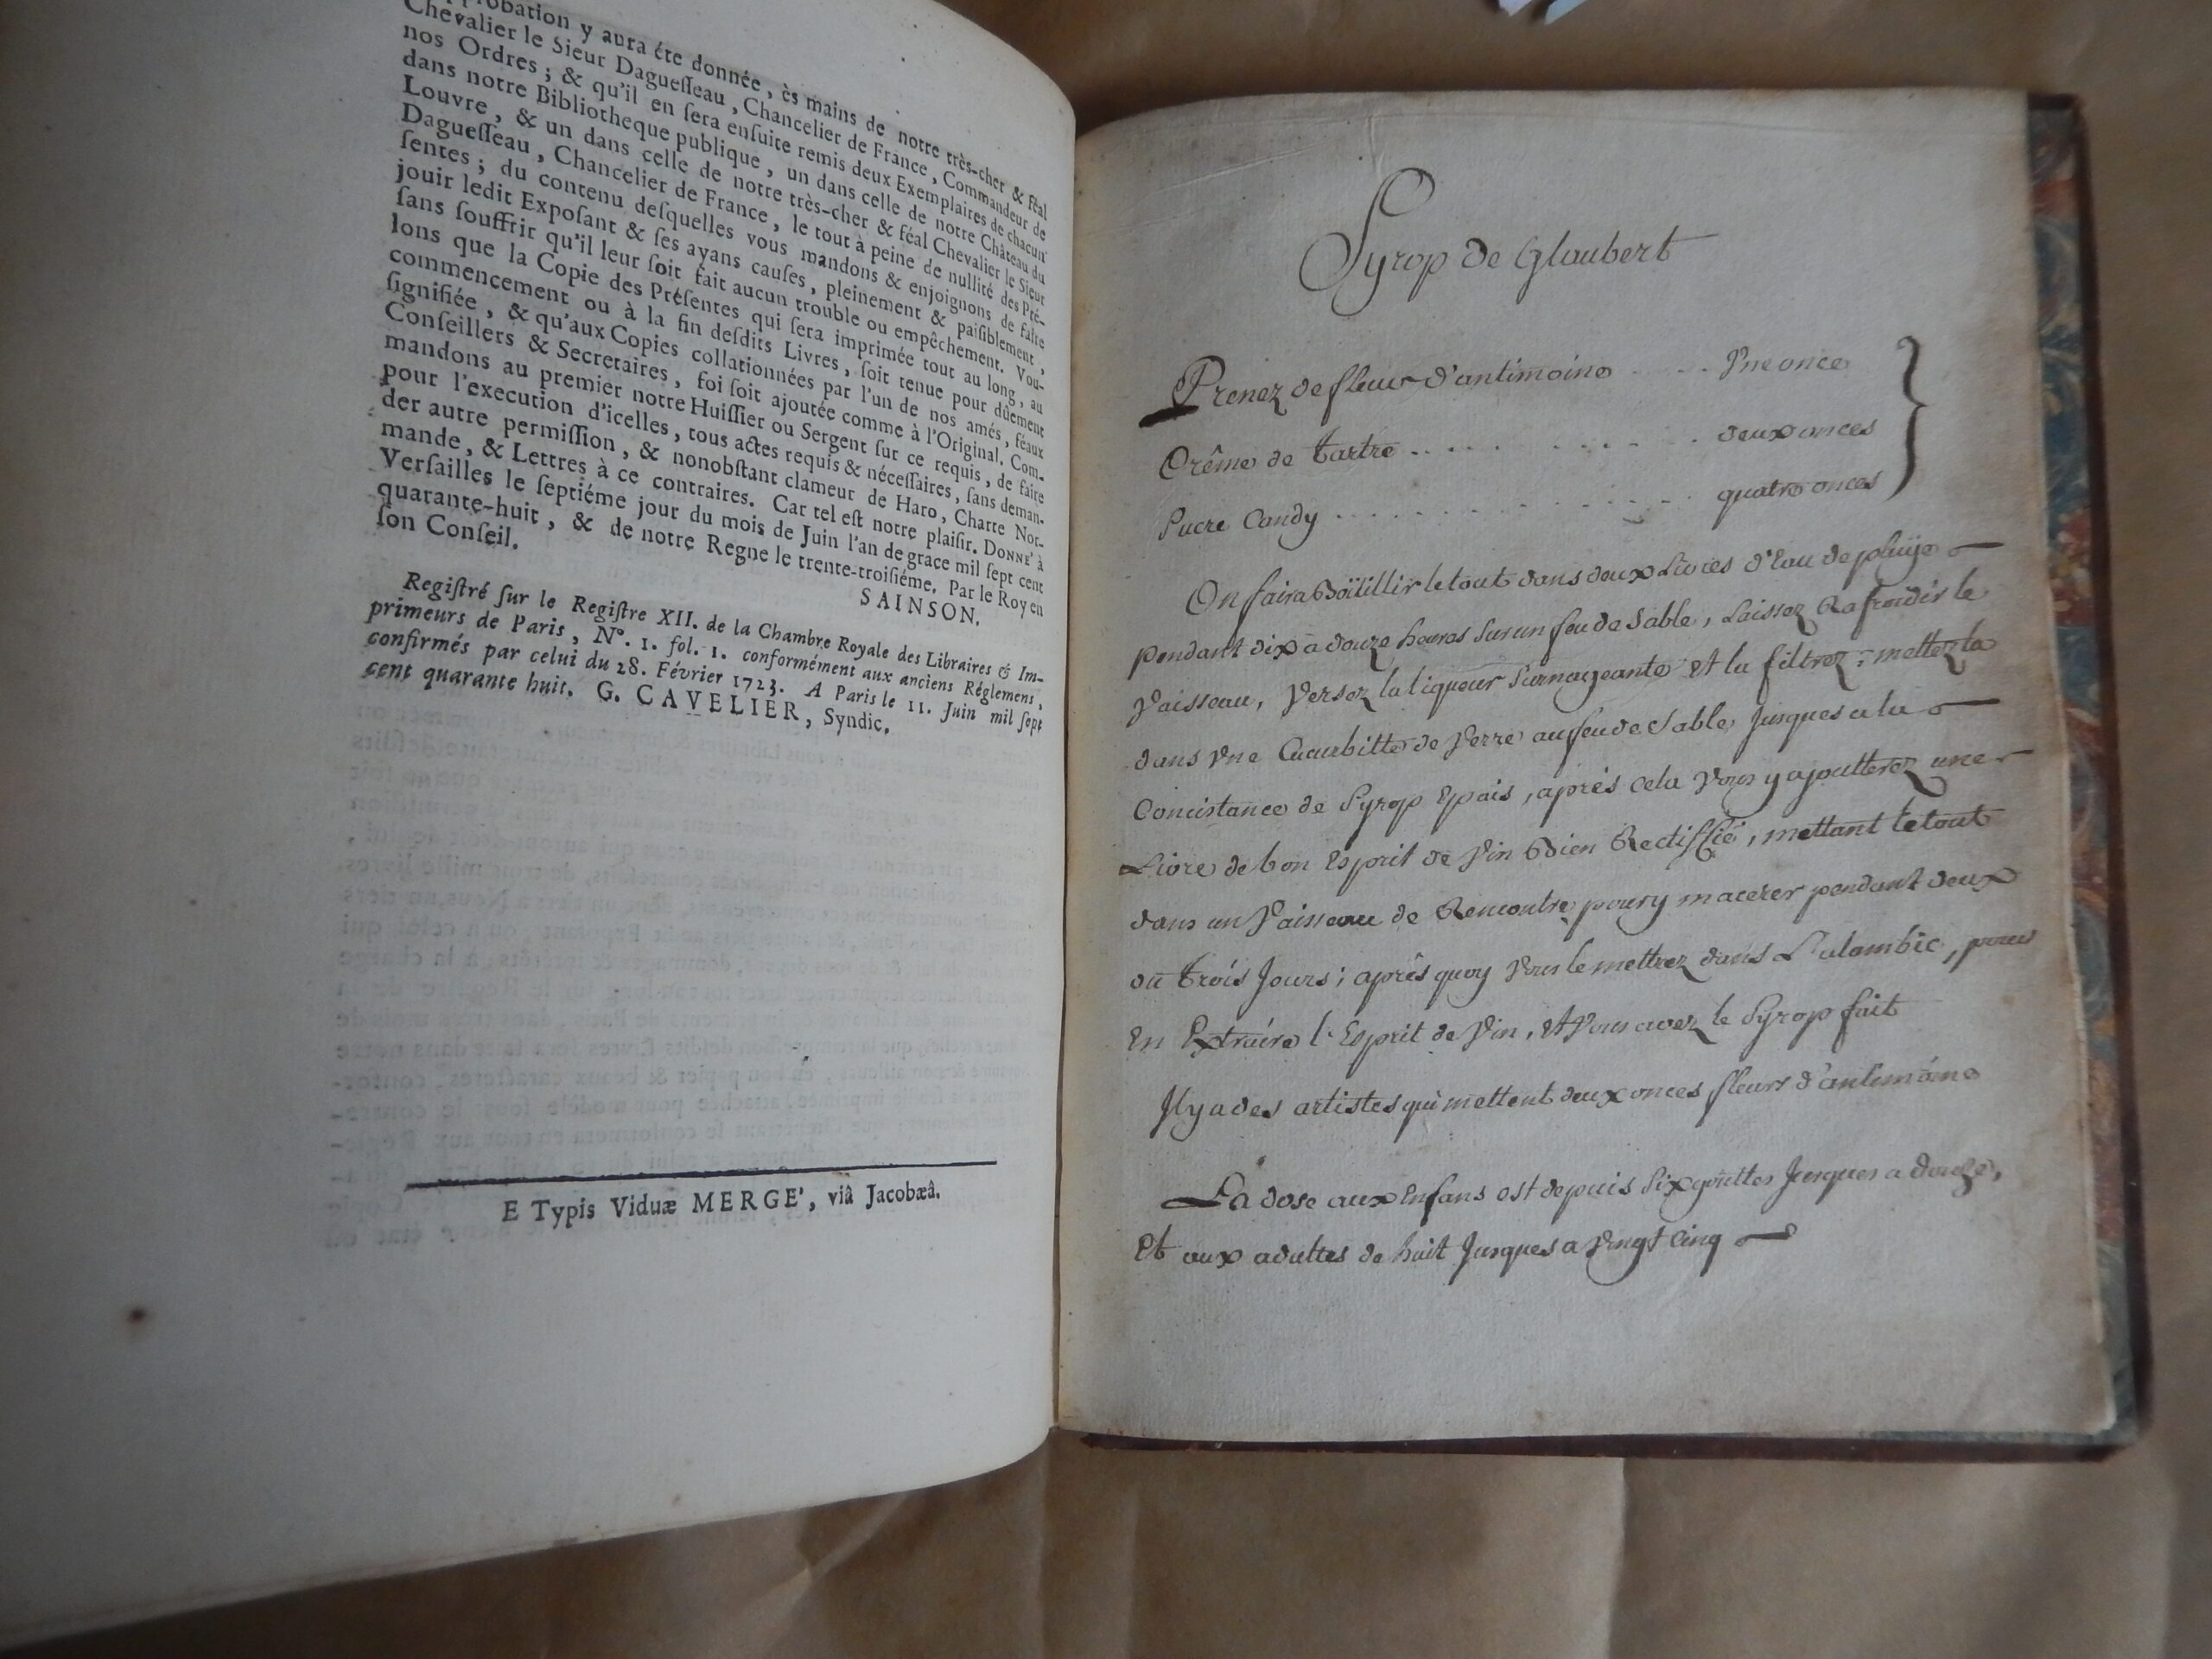 probation y aura été donnée, ès mains de notre très-cher & féal
Chevalier le Sieur Dagueſſeau, Chancelier de France, Commandeur de
nos Ordres; & qu'il en ſera enſuite remis deux Exemplaires de chacun
dans notre Bibliotheque publique, un dans celle de notre Château du
Louvre, & un dans celle de notre très-cher & féal Chevalier le Sieur
Dagueſſeau, Chancelier de France, le tout à peine de nullité des Pré-
ſentes; du contenu deſquelles vous mandons & enjoignons de faire
jouir ledit Expoſant & ſes ayans cauſes, pleinement & paiſiblement,
ſans ſouffrir qu'il leur ſoit fait aucun trouble ou empêchement. Vou-
lons que la Copie des Préſentes qui ſera imprimée tout au long, au
commencement ou à la fin deſdits Livres, ſoit tenue pour dûement
ſignifiée, & qu'aux Copies collationnées par l'un de nos amés, féaux
Conſeillers & Secretaires, foi ſoit ajoutée comme à l'Original. Com-
mandons au premier notre Huiſſier ou Sergent ſur ce requis, de faire
pour l'execution d'icelles, tous actes requis & néceſſaires, ſans deman-
der autre permiſſion, & nonobſtant clameur de Haro, Charte Nor-
mande, & Lettres à ce contraires. Car tel eſt notre plaiſir. DONNE' à
Verſailles le ſeptiéme jour du mois de Juin l'an de grace mil ſept cent
quarante-huit, & de notre Regne le trente-troiſiéme. Par le Roy en
ſon Conſeil.
SAINSON.
Regiſtré ſur le Regiſtre XII. de la Chambre Royale des Libraires & Im-
primeurs de Paris, N°. 1. fol. 1. conformément aux anciens Réglemens,
confirmés par celui du 28. Février 1723. A Paris le 11. Juin mil ſept
cent quarante huit. G. CAVELIER, Syndic.
E Typis Viduæ MERGE', viâ Jacobæâ.
Syrop de Glaubert
Prenez de fleur d'antimoine ..... Vne once
Crême de Tartre ..... deux onces
Sucre Candy ..... quatre onces
On faira Boüillir le tout dans deux Livres d'Eau de pluÿe
pendant dix a douze heures sur un feu de Sable, Laissez Rafroidir le
Vaisseau, Versez la liqueur Surnageante et la filtrez; mettez la
dans Vne Cucurbitte de Verre au feu de Sable Jusques a la
Concistance de Syrop Epais, aprés cela Vous y ajoutterez une
Livre de bon Esprit de Vin Bien Rectiffié, mettant le tout
dans un Vaisseau de Rencontre pour y macerer pendant deux
ou trois Jours; aprês quoy Vous le mettrez dans L'alambic, pour
En Extraire l'Esprit de Vin, et Vous avez le Syrop fait
Il y a des artistes qui mettent deux onces fleurs d'antimoine
La dose aux Enfans est depuis Six gouttes Jusques a douze,
Et aux adultes de huit Jusques a Vingt Cinq